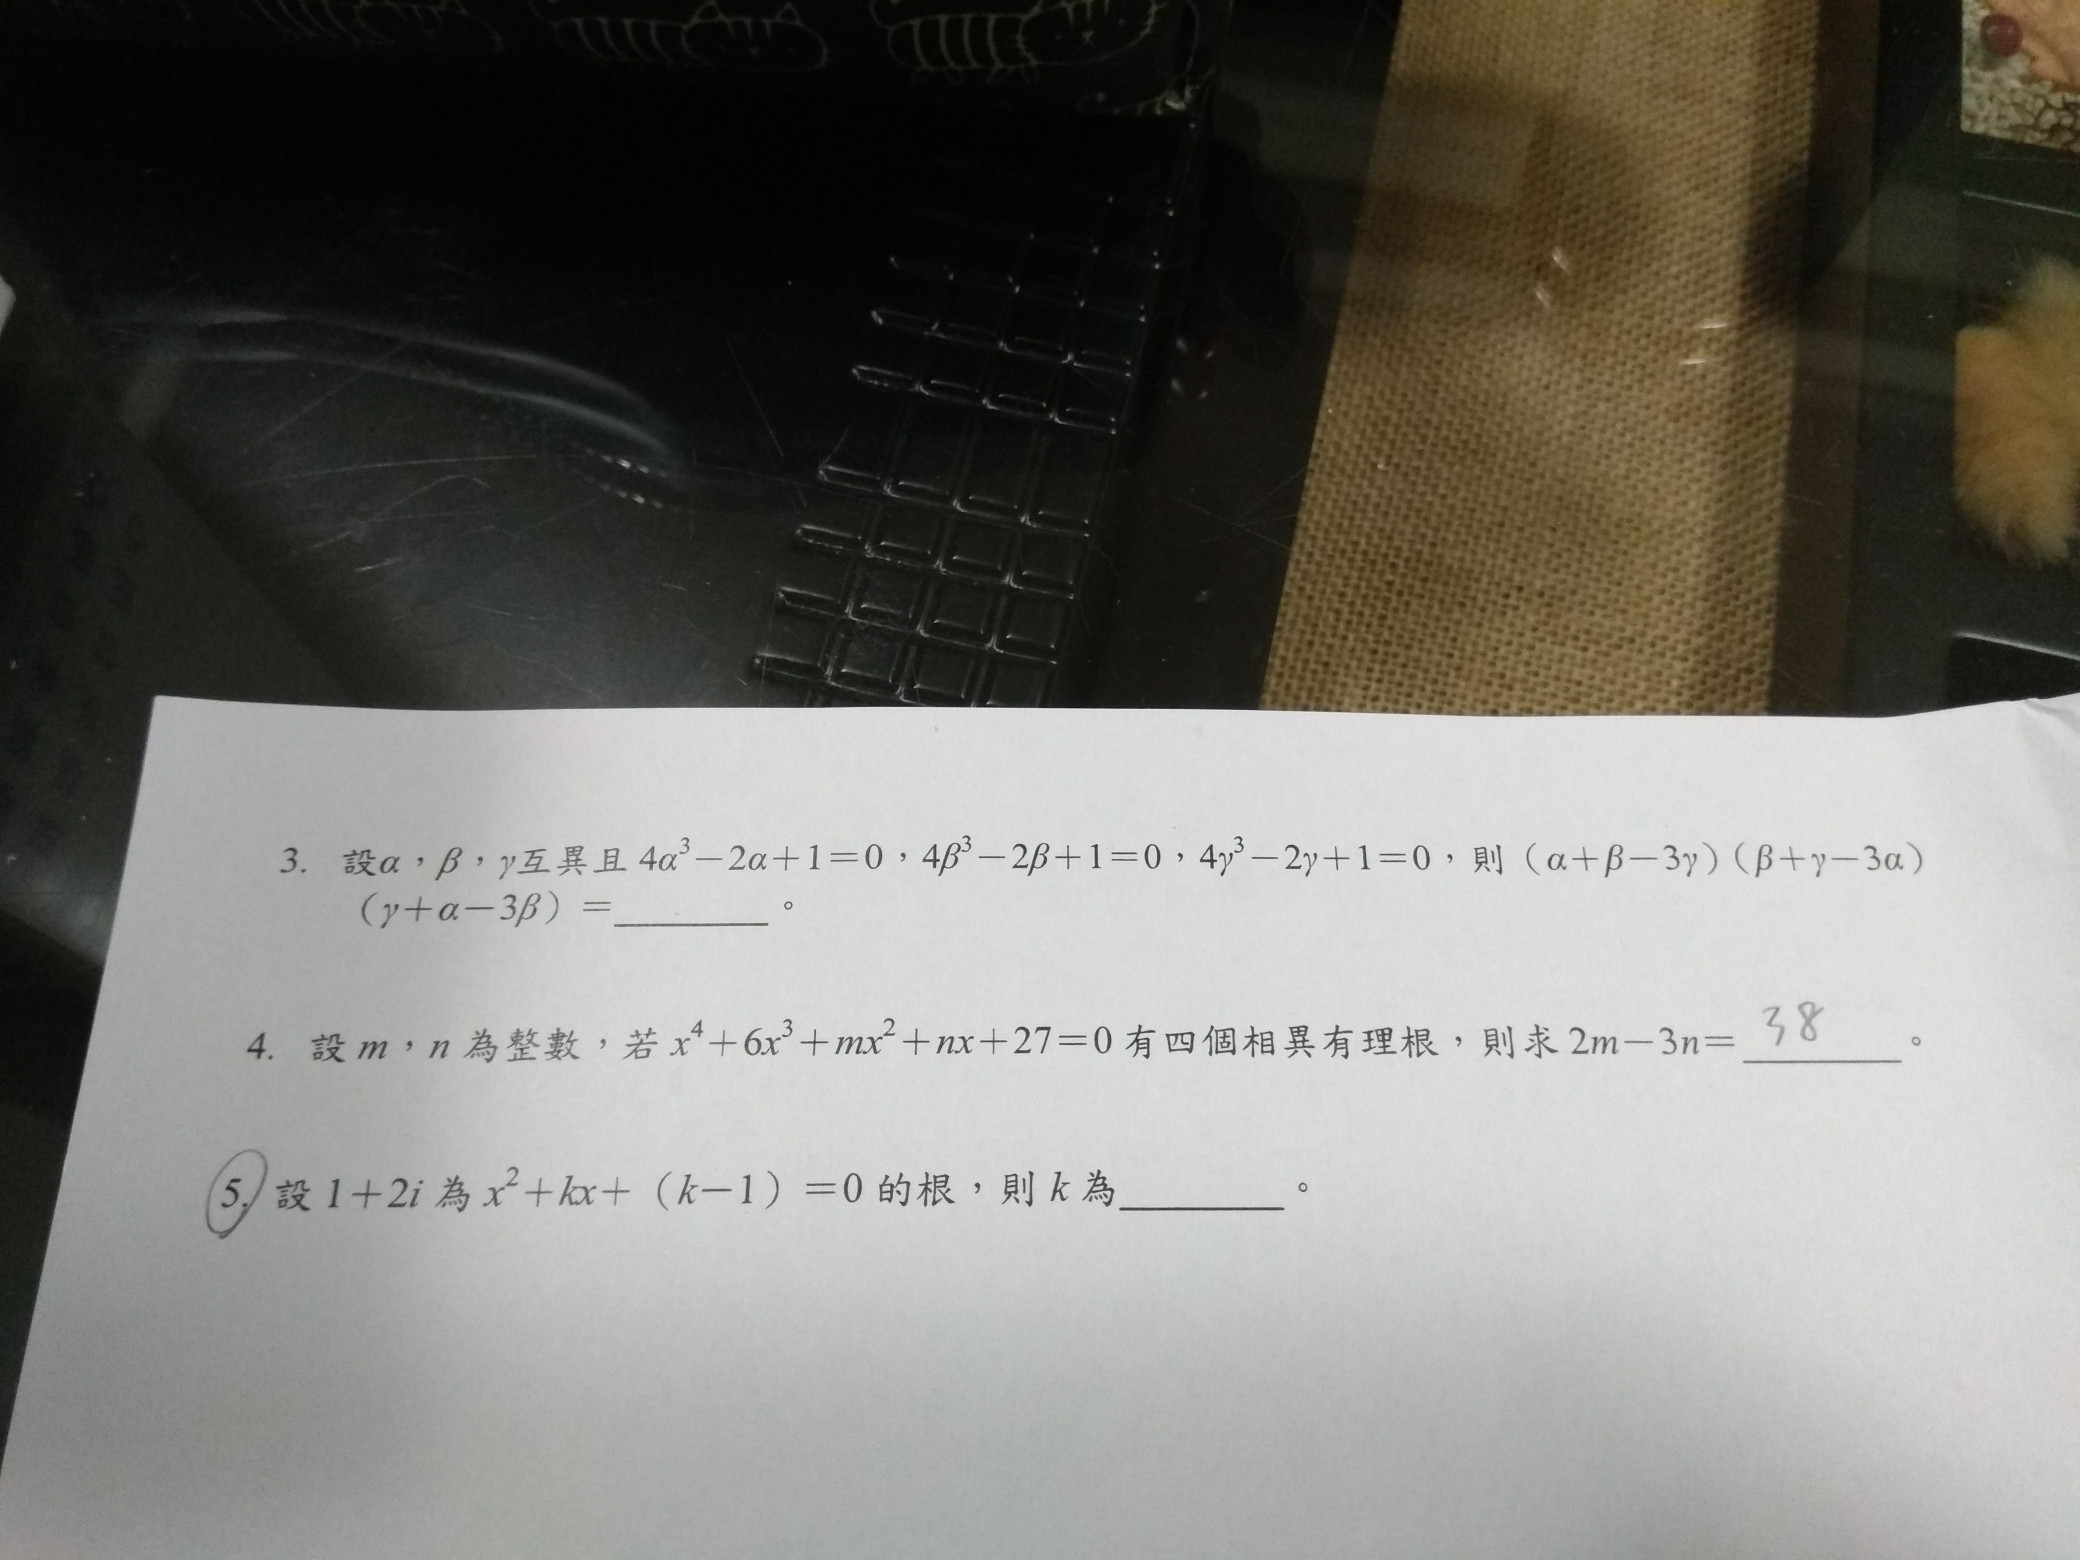 3. 設α，β，γ互異且 4α³－2α＋1＝0，4β³－2β＋1＝0，4γ³－2γ＋1＝0，則（α＋β－3γ）（β＋γ－3α）
（γ＋α－3β）＝________。
4. 設 m，n 為整數，若 x⁴＋6x³＋mx²＋nx＋27＝0 有四個相異有理根，則求 2m－3n＝ 38 。
5. 設 1＋2i 為 x²＋kx＋（k－1）＝0 的根，則 k 為________。